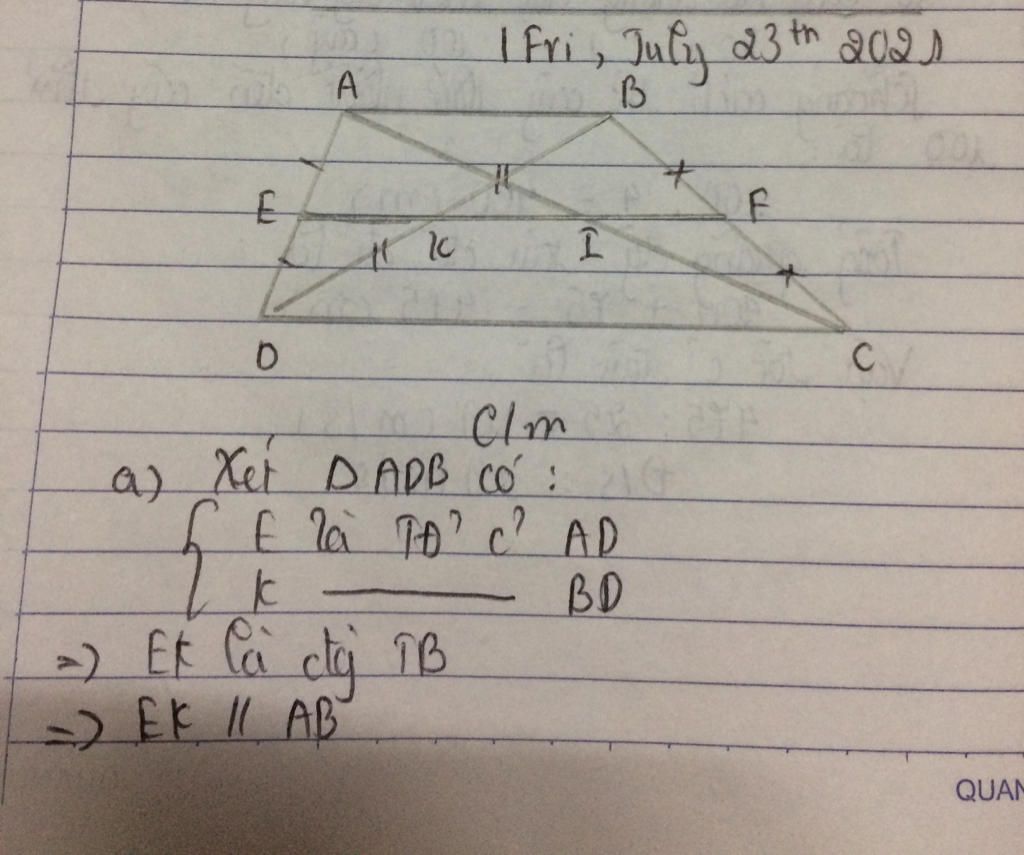 Fri, July 23th 2021
A B
E F
K I
D C
C/m
a) Xét Δ ADB có:
E là TĐ' c' AD
K ——— BD
=> EK là đg TB
=> EK // AB
QUAN